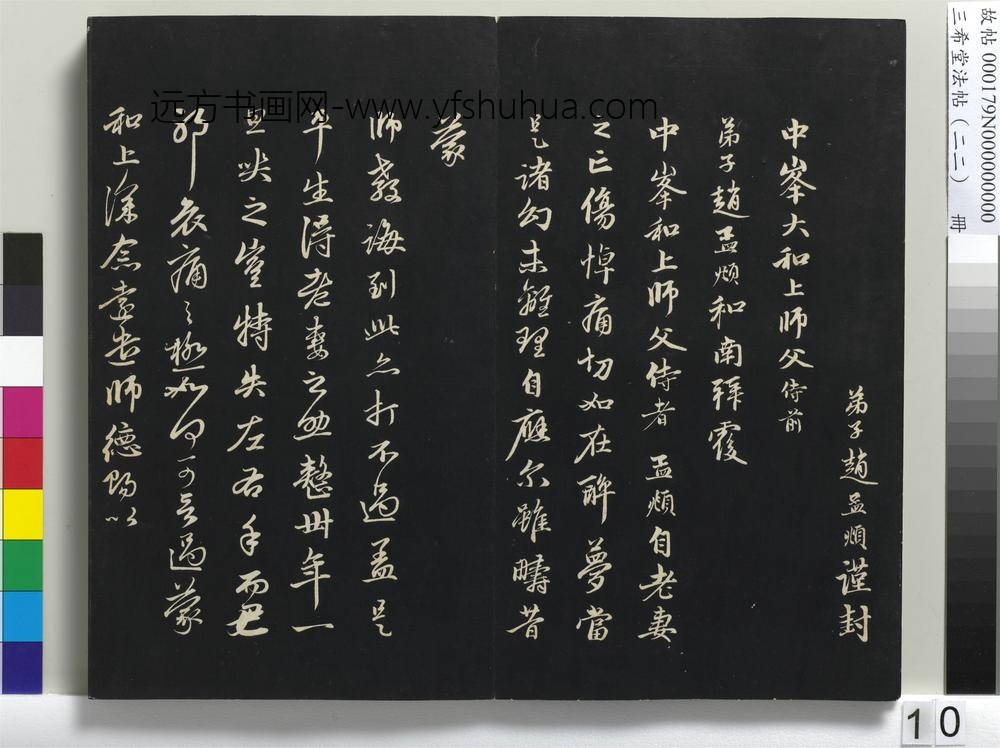 弟子趙孟頫謹封
中峯大和上師父侍前
弟子趙孟頫和南拜覆
中峯和上師父侍者孟頫自老妻
之亡傷悼痛切如在醉夢當
是諸幻未離理自應尔雖疇昔
蒙
師教誨到此亦打不過盖是
平生得老妻之助整卅年一
旦哭之豈特失左右手而已
耶哀痛之極如何可言過蒙
和上深念遠遣師德賜以
远方书画网-www.yfshuhua.com
故帖 000179N000000000
三希堂法帖（二二） 冊
10